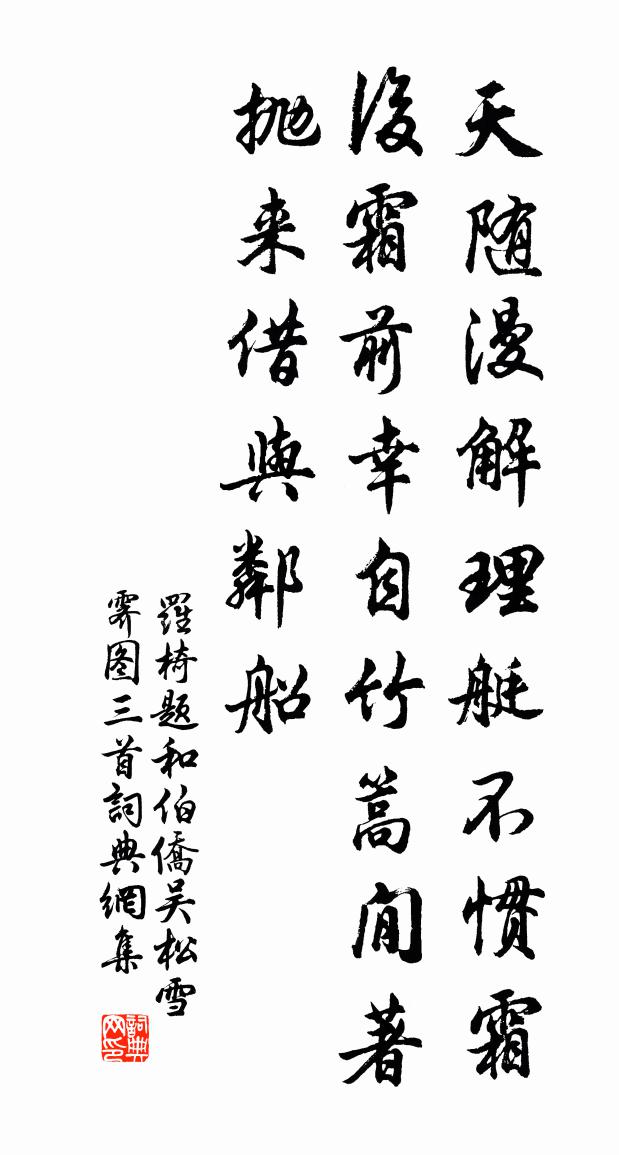 天随漫解理艇不惯霜
後霜前幸自竹篙閒著
抛来借與鄰船
羅椅题和伯僑吴松雪
霁图三首詞典網集
詞典网印